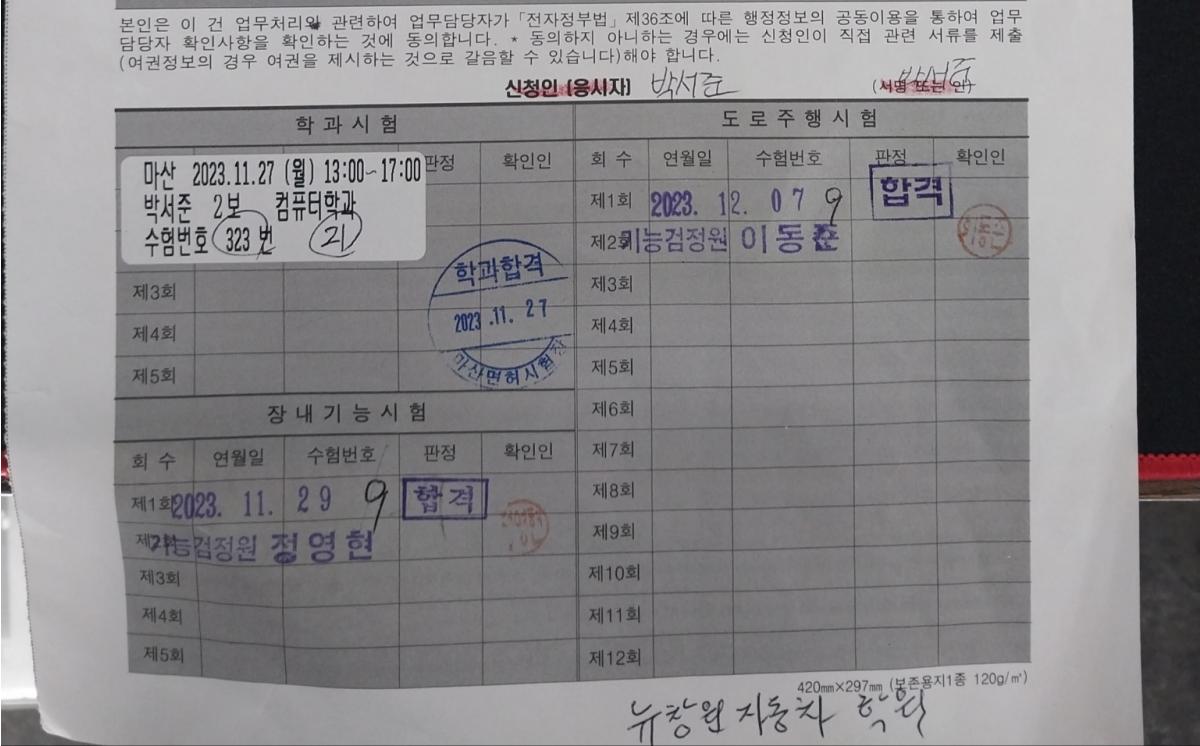 본인은 이 건 업무처리와 관련하여 업무담당자가 「전자정부법」 제36조에 따른 행정정보의 공동이용을 통하여 업무
담당자 확인사항을 확인하는 것에 동의합니다. * 동의하지 아니하는 경우에는 신청인이 직접 관련 서류를 제출
(여권정보의 경우 여권을 제시하는 것으로 갈음할 수 있습니다)해야 합니다.
신청인 (응시자) 박서준 박서준 (서명 또는 인)
학 과 시 험
판정 확인인
마산 2023.11.27 (월) 13:00~17:00
박서준 2보 컴퓨터학과
수험번호 323 번 21
제3회
제4회
제5회
학과합격
2023 .11. 27
마산면허시험장
장 내 기 능 시 험
회 수 연월일 수험번호 판정 확인인
제1회 2023. 11. 29 9 합격
제2회 기능검정원 정영현
제3회
제4회
제5회
도 로 주 행 시 험
회 수 연월일 수험번호 판정 확인인
제1회 2023. 12. 07 9 합격
제2회 기능검정원 이동준
제3회
제4회
제5회
제6회
제7회
제8회
제9회
제10회
제11회
제12회
420㎜×297㎜ (보존용지1종 120g/㎡)
뉴창원 자동차 학원